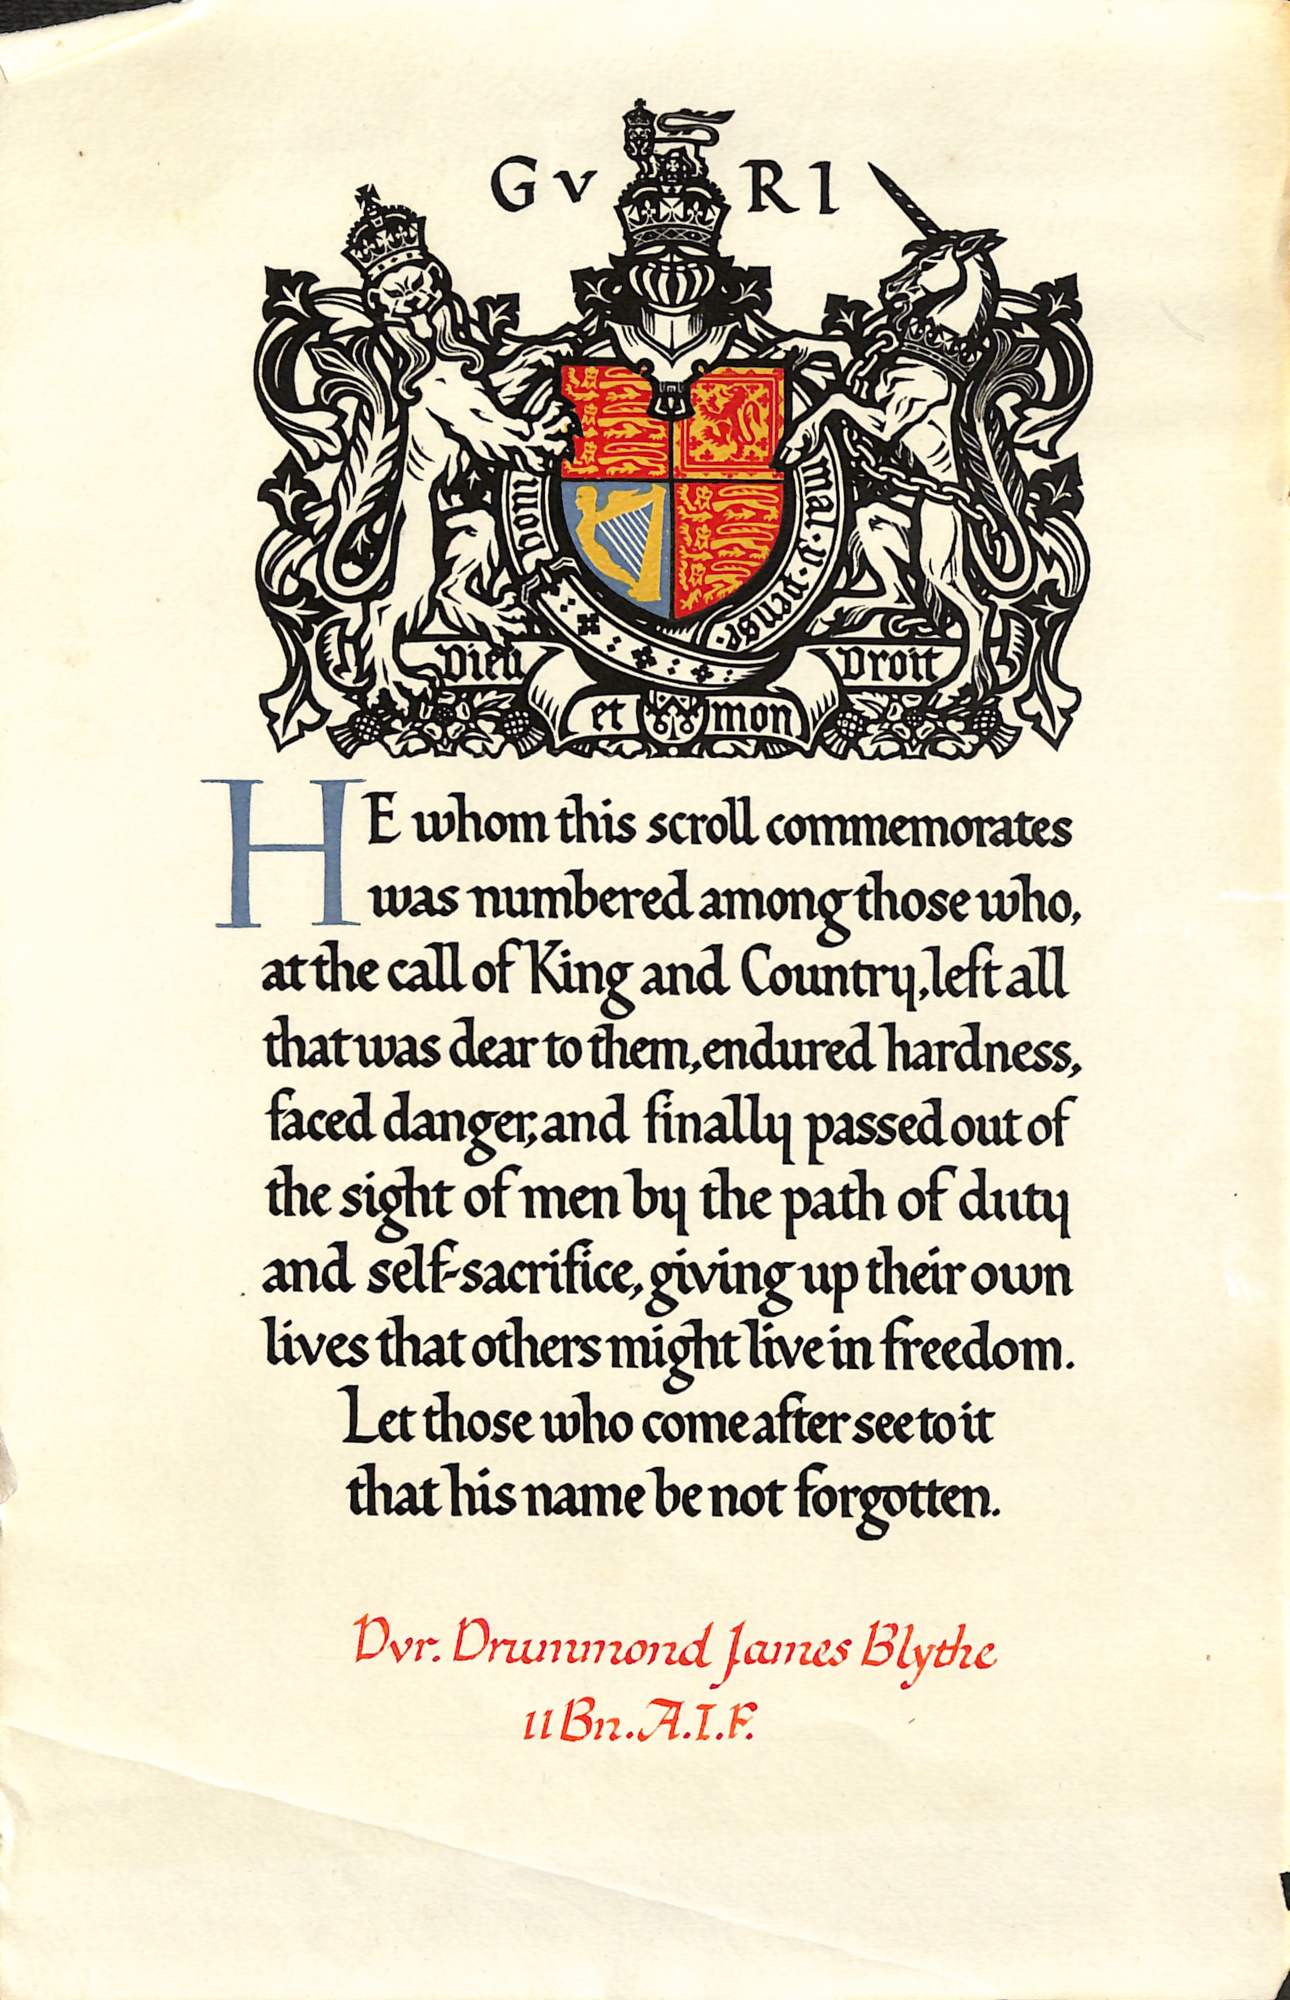 GV RI
honi
mal·y·pense·
Dieu et mon Droit
HE whom this scroll commemorates
was numbered among those who,
at the call of King and Country, left all
that was dear to them, endured hardness,
faced danger, and finally passed out of
the sight of men by the path of duty
and self-sacrifice, giving up their own
lives that others might live in freedom.
Let those who come after see to it
that his name be not forgotten.
Dvr. Drummond James Blythe
11 Bn. A.I.F.